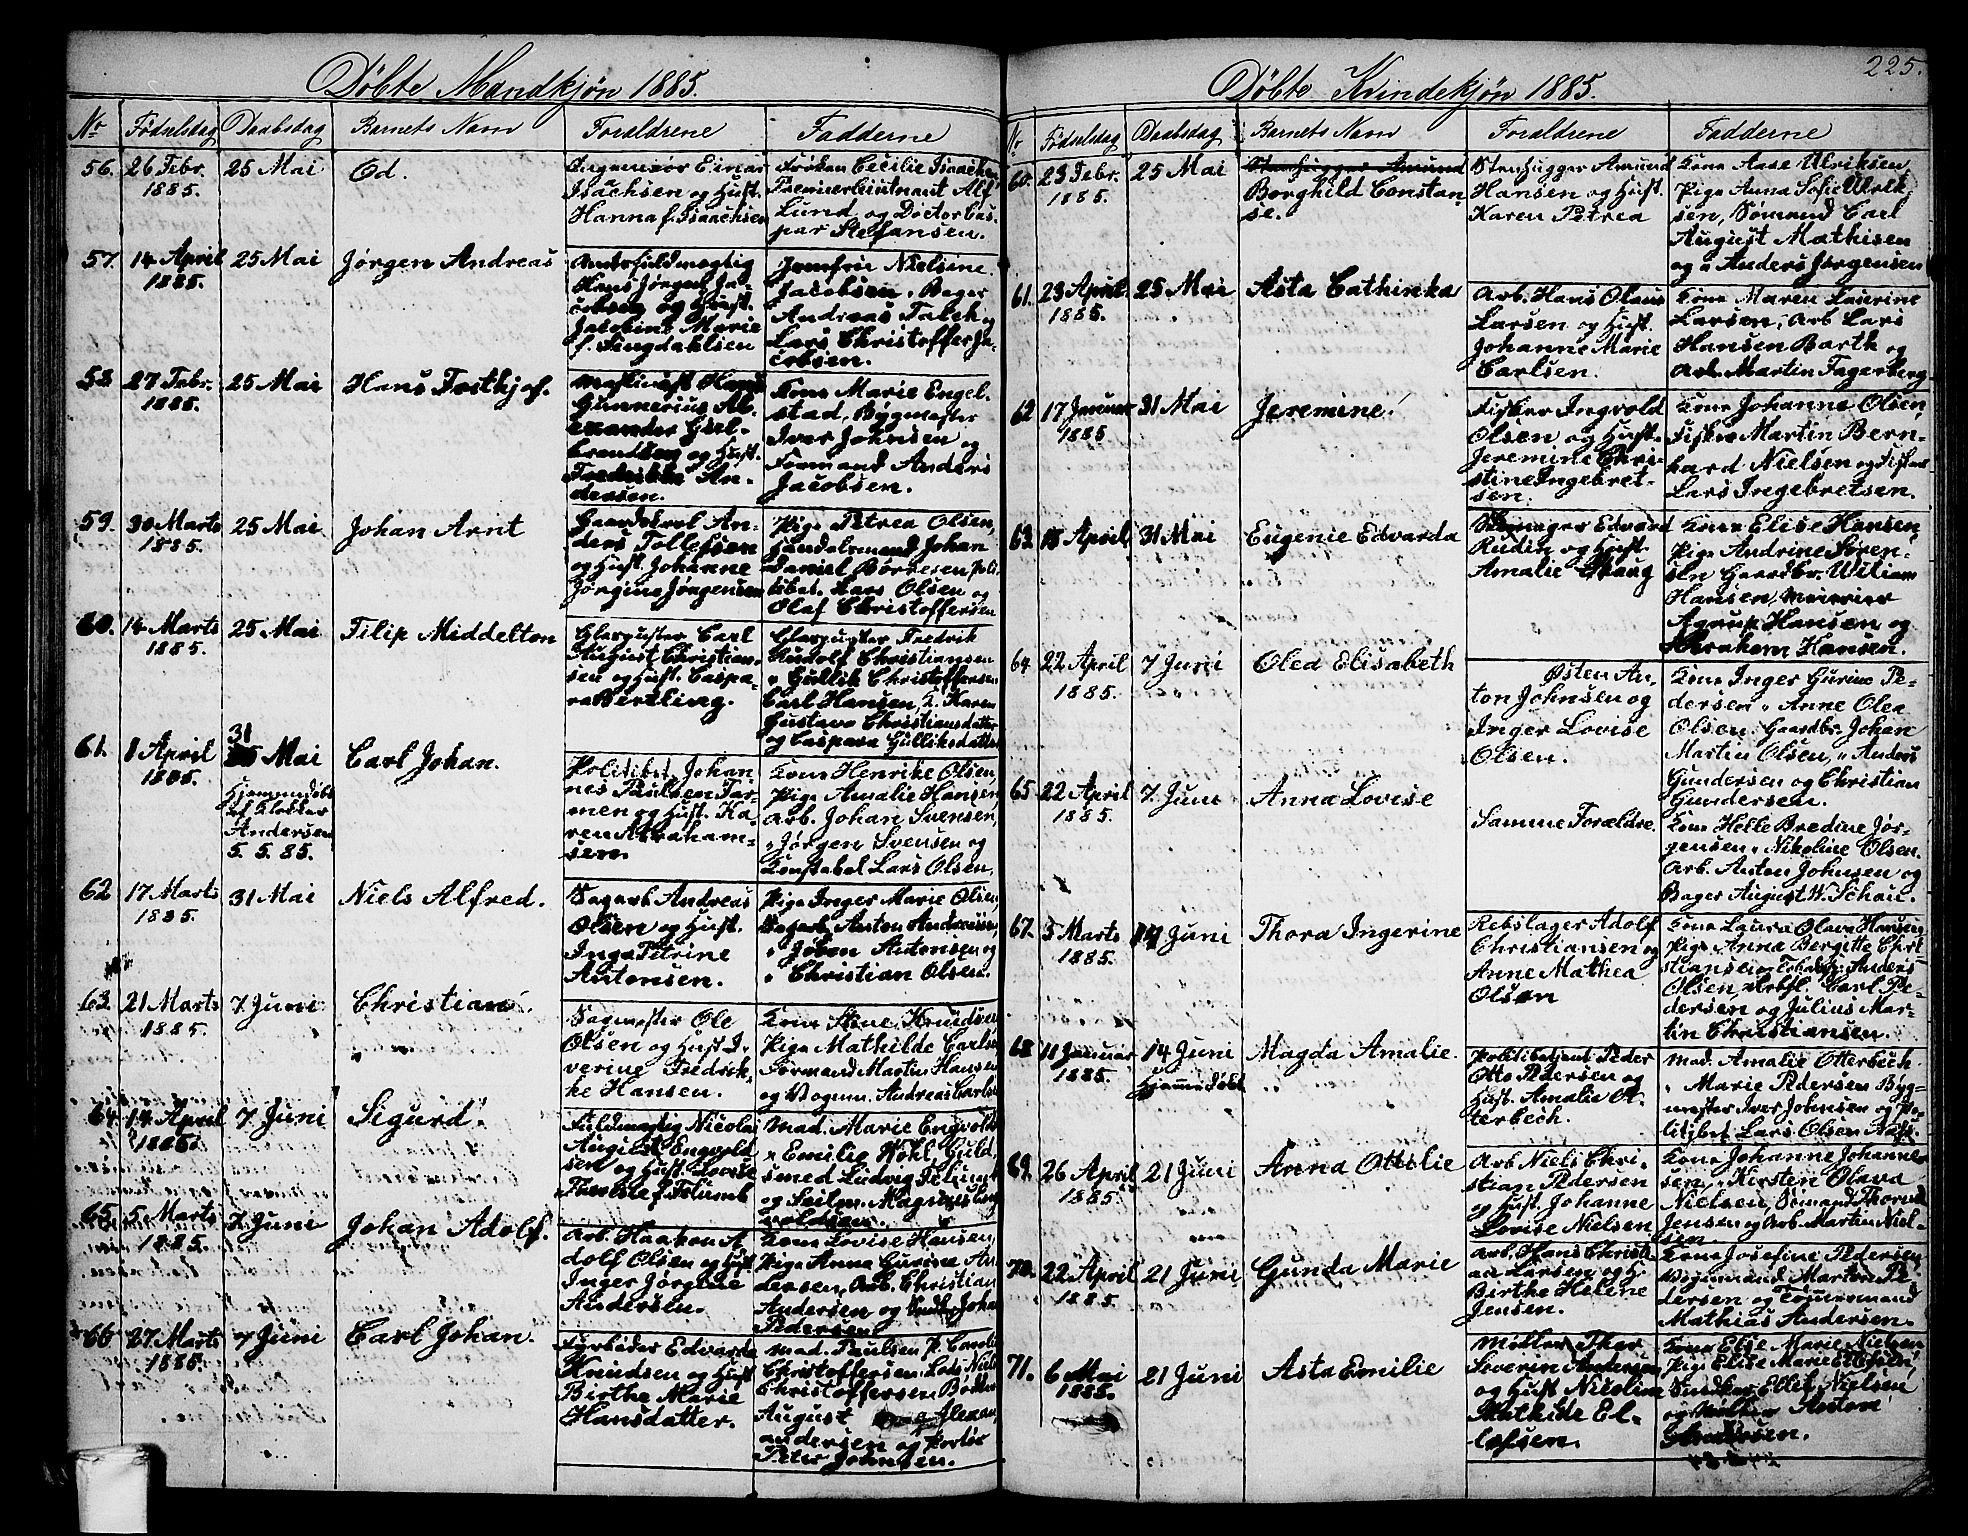 Døbte Mandkjøn 1885.
No Fødselsdag Daabsdag Barnets Navn Forældrene Fadderne
56. 26 Febr. 1885. 25 Mai Od.
Ingeniør Einar
Isachsen og Hust.
Hanna f. Isaachsen
Frøken Cecilie Isaachsen
Premierleutnant Alf
Lund, og Doctor Cas-
par Stefansen.
57. 14 April 1885. 25 Mai Jørgen Andreas
Hans Jørgen Ja-
cobsen og Hust.
Jacobine Marie
f. Singdahlsen
Jomfru Nielsine
Jacobsen, Bager
Andreas Falch og
Lars Christoffer Ja-
cobsen.
58 27 Febr. 1885. 25 Mai Hans Frithjof.
Hans
Gunnerius Al-
exander Gul-
brandsen og Hust.
Fredrikke An-
dersen.
Kone Marie Engel-
stad, Bygmester
Iver Johnsen og
Formand Anders
Jacobsen.
59. 30 Marts 1885. 25 Mai Johan Arnt
An-
ders Tollefsen
og Hust. Johanne
Jørgine Jørgensen
Pige Petrea Olsen,
Handelsmand Johan
Daniel Børresen, Poli-
tibet. Lars Olsen og
Olaf Christoffersen
60. 14 Marts 1885. 25 Mai Filip Middelton
Glaspuster Carl
August Christian-
sen og Hust. Caspa-
ra Bertling.
Glaspuster Fredrik
Rudolf Christiansen
" Gullik Christoffersen
Carl Hansen, K. Karen
Gustava Christiansdatter
og Caspara Gulliksdatter
61. 8 April 1885. 31 Mai Carl Johan.
Hjemmedøbt
af Klokker
Andersen
5. 5. 85.
Politibet. Johan-
nes Paulsen Far-
men og Hust. Ka-
ren Abraham-
sen.
Kone Henrike Olsen,
Pige Amalie Hansen,
Arb. Johan Svensen,
" Jørgen Svensen og
Konstabel Lars Olsen.
62 17 Marts 1885. 31 Mai Niels Alfred.
Sagarb. Andreas
Olsen og Hust.
Inga Petrine
Antonsen.
Pige Inger Marie Olsen,
Sagarb. Anton Andreassen,
" Johan Antonsen og
" Christian Olsen.
63. 21 Marts 1885. 7 Juni Christian.
Sagmester Ole
Olsen og Hust I-
verine Fredrik-
ke Hansen.
Kone Ane Knudsen
Pige Mathilde Carlsen
Formand Martin Hansen
og Vognm. Andreas Carlsen
64. 14 April 1885. 7 Juni Sigurd.
Fuldmægtig Nicolai
August Engvold-
sen og Hust. Lovise
Mad. Marie Engvolds
" Emilie Køhl, Guld-
smed Ludvig
og
voldsen.
65. 5 Marts 1885. 7 Juni Johan Adolf.
Arb. Haakon A-
dolf Olsen og Hust
Inger Jørgine
Andersen.
Kone Lovise Hansen,
Pige Anna Gurine An-
dersen, Arb. Christian
Andersen og Johan
Pedersen
66 27 Marts 1885. 7 Juni Carl Johan.
Fyrbøder Edvard
Knudsen og Hust
Birthe Marie
Hansdatter.
Mad. Paulsen, P. Caroline
Christoffersen, Lods Niels
Christoffersen,
August
Andersen og
Peter Johnsen.
225.
Døbte Kvindekjøn 1885.
Nr Fødselsdag Daabsdag Barnets Navn Forældrene Fadderne
60. 23 Febr. 1885. 25 Mai Stenhugger Amund
Borghild Constan-
se.
Stenhugger Amund
Hansen og Hust.
Karen Petrea
Kone Aase Ulriksen,
Pige Anna Sofie Ulrik-
sen, Sømand Carl
August Mathisen
og " Anders Jørgensen
61. 23 April 1885. 25 Mai Asta Cathinka
Arb. Hans Olaus
Larsen og Hust.
Johanne Marie
Carlsen.
Kone Maren Laurine
Larsen, Arb Lars
Hansen Barth og
Arb. Martin Fagerberg
62 17 Januar 1885 31 Mai Jeremine.
Fisker Ingvold
Olsen og Hust.
Jeremine Chri-
stine Ingebret-
sen.
Kone Johanne Olsen,
Fisker Martin Bern-
hard Nielsen og Fisker
Lars Ingebretsen.
63. 18 April 31 Mai Eugenie Edvarda
Edvard
Rudin og Hust.
Amalie Skaug
Kone Elise Hansen,
Pige Andrine Søren-
sen Gaardbr. William
Hansen,
Agrup Hansen og
Abraham Hansen.
64. 22 April 1885. 7 Juni Olea Elisabeth
Østen An-
ton Johnsen og
Inger Lovise
Olsen.
Kone Inger Gurine Pe-
dersen " Anne Olea
Olsen. Gaardbr. Johan
Martin Olsen, " Anders
Gundersen og Christian
Gundersen.
65 22 April 1885. 7. Juni Anna Lovise
Samme Forældre.
Kone Helle Bredine Jør-
gensen " Nikoline Olsen.
Arb. Anton Johnsen og
Bager August W. Schou.
67. 5 Marts 1885. 14 Juni Thora Ingerine
Rebslager Adolf
Christiansen og
Anne Mathea
Olsen
Kone Laura Olava Hansen,
Pige Anna Bergitte Chri-
stiansen og Anders
Olsen, Carl Pe-
dersen og Julius Mar-
tin Christiansen.
68 11 Januar 1885. 14 Juni Magda Amalie.
Hjemmedøbt
Politibetjent Peder
Otto Pedersen og
Hust. Amalie Ot-
terbech.
Mad. Amalie Otterbech
" Marie Pedersen Byg-
mester Iver Johnsen og Po-
litibet. Lars Olsen Næss.
69. 26 April 1885. 21 Juni Anna Ottilie
Arb Niels Chri-
stian Pedersen
og Hust. Johanne
Lovise Nielsen
Kone Johanne Johanne-
sen, " Kirsten Olava
Nielsen, Sømand Thorvald
Jensen og Arb. Martin Niel-
sen.
70. 22 April 1885. 21 Juni Gunda Marie
Arb. Hans Christi-
an Larsen og H.
Birthe Helene
Jensen.
Kone Josefine Pedersen,
Vognmand Morten Pe-
dersen og Tømmermand
Mathias Andersen.
71. 6 Mai 1885. 21 Juni Asta Emilie
Møller Thor
Severin Andersen
og Hust Nicoline
Mathilde El-
lefsen.
Kone Elise Marie Nielsen
Pige Elise Marie Ellefsen,
Snedker Ellef Nielsen
og Møller Anton
Andersen.